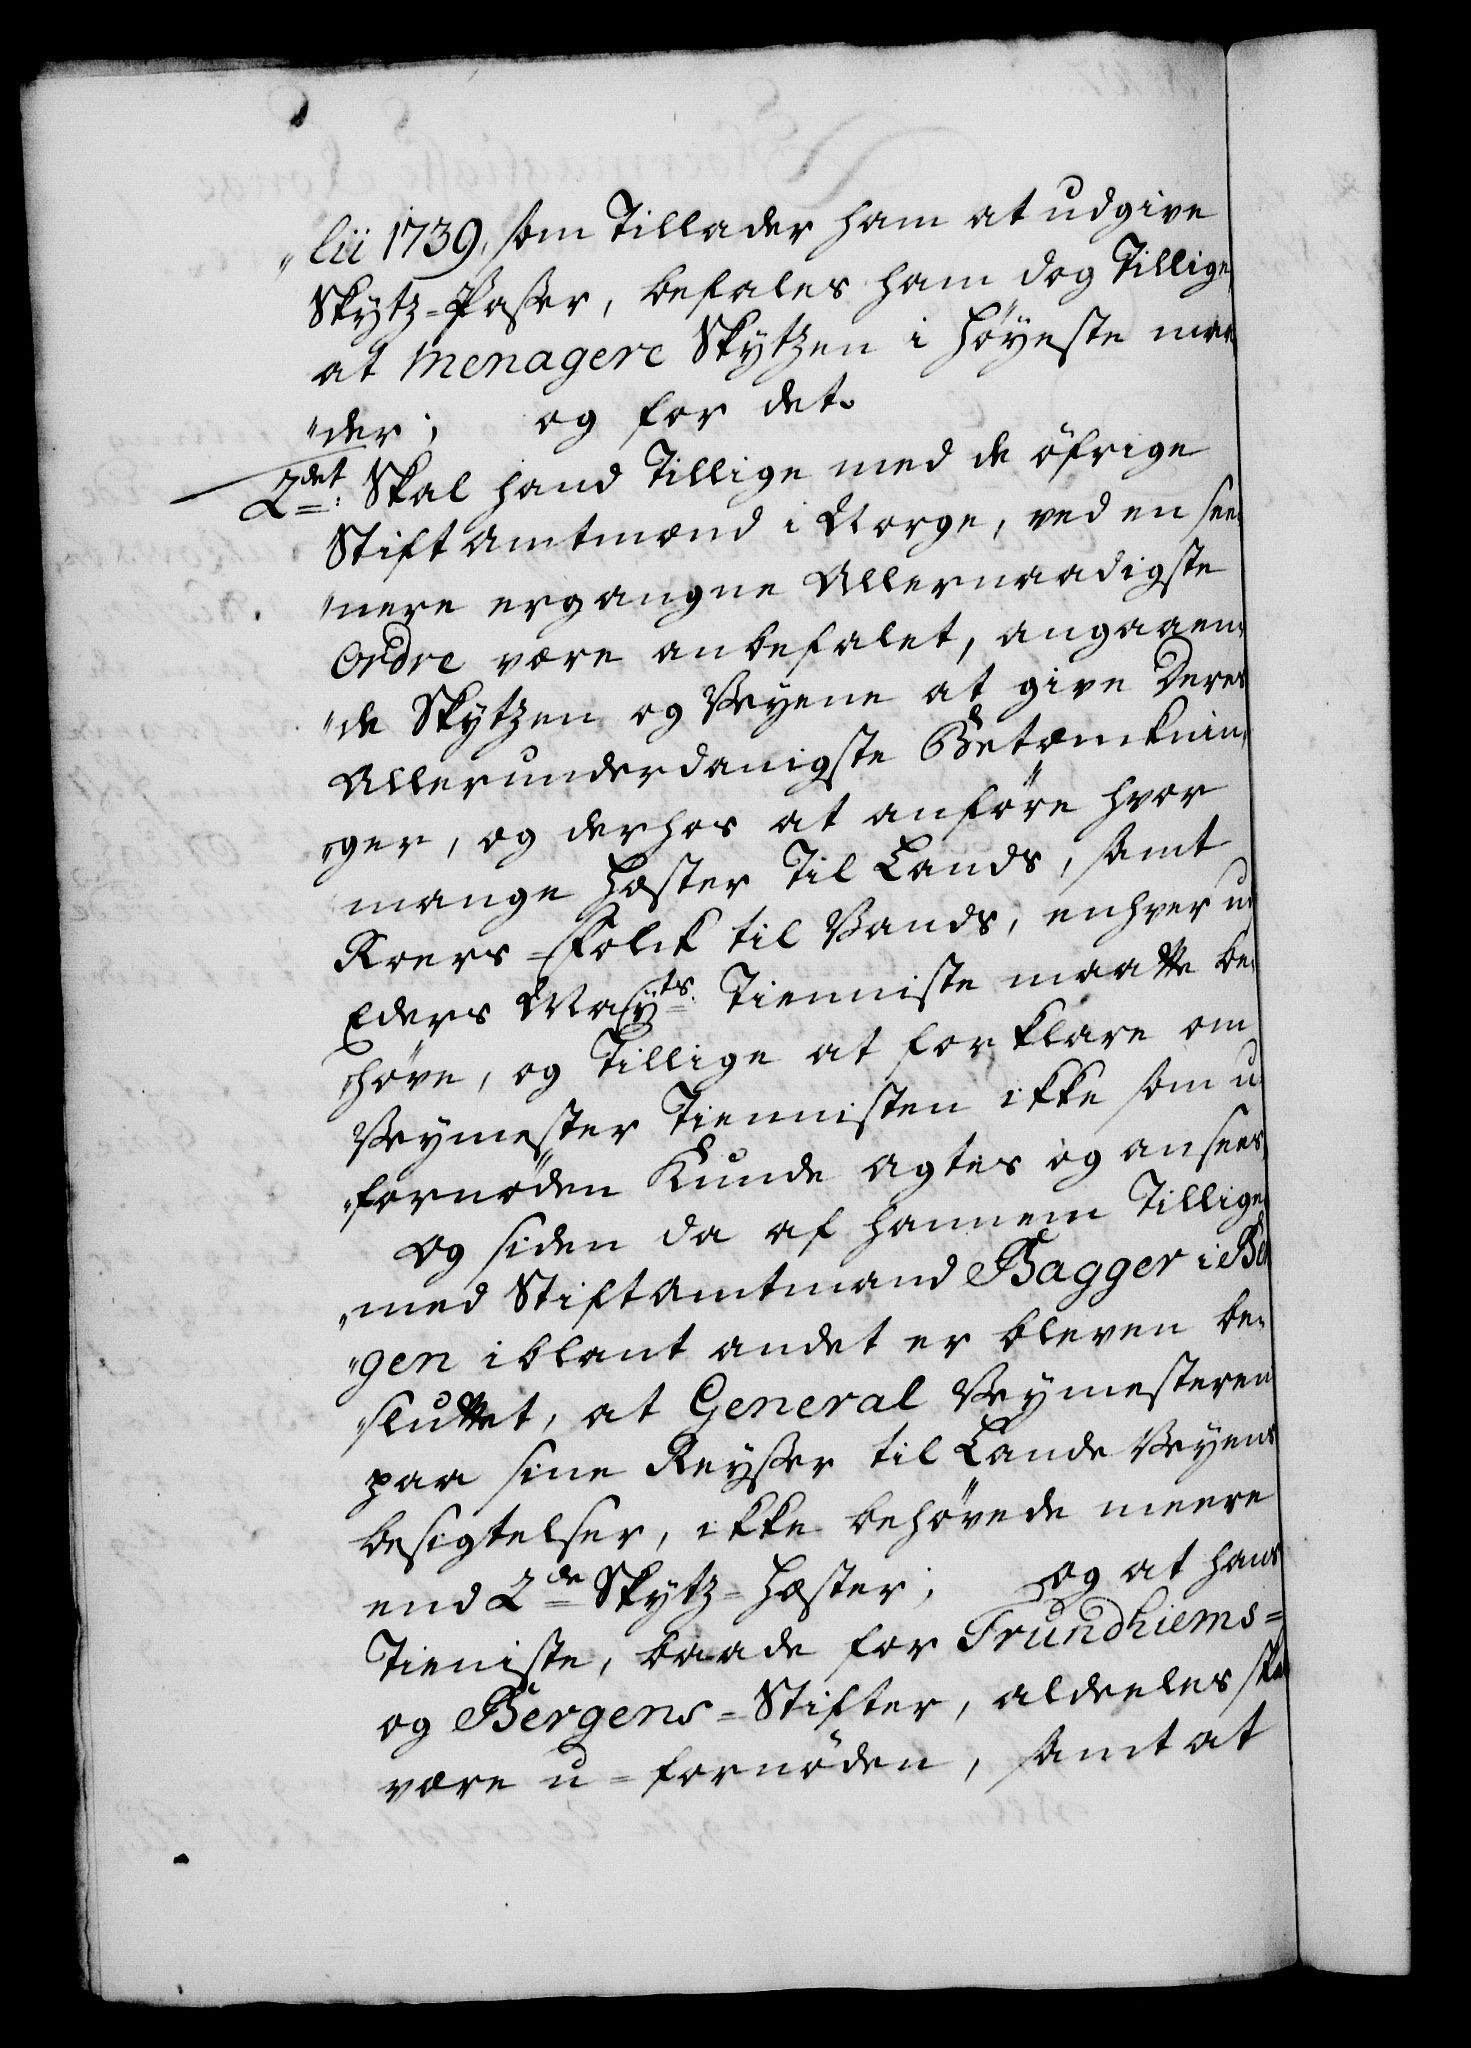 „lii 1739, som Tillader ham at udgive
Skytz=Passer, befales ham dog Tillige
at menagere Skytzen i höyeste maa
„der; og for det.
2det: Skal hand Tillige med de öfrige
Stiftamtmænd i Norge, ved en see„
„nere ergangne Allernaadigste
Ordre være anbefalet, angaaen„
„de Skytzen og Veyene at give Deres
Allerunderdanigste Betænknin„
„ger, og derhos at anföre hvor
mange Hæster Til Lands, samt
Roers=Folck til Vands, enhver udi
Eders Mayts. Tienniste maatte be„
„höve, og Tillige at forklare om
Veymester Tiennisten ikke som u„
„fornöden Kunde agtes og ansees,
Og siden da af hannem Tillige
„med Stiftamtmand Bagger i Ber
„gen iblant andet er bleven be„
„sluttet, at General Veymesteren
paa sine Reysser til Lande Veyens
besigtelser, ikke behövede meere
end 2de Skytz=Hæster; og at hans
Tieniste, baade for Trundhiems=
og Bergens=Stifter, aldeeles skal
være u=fornöden, samt at